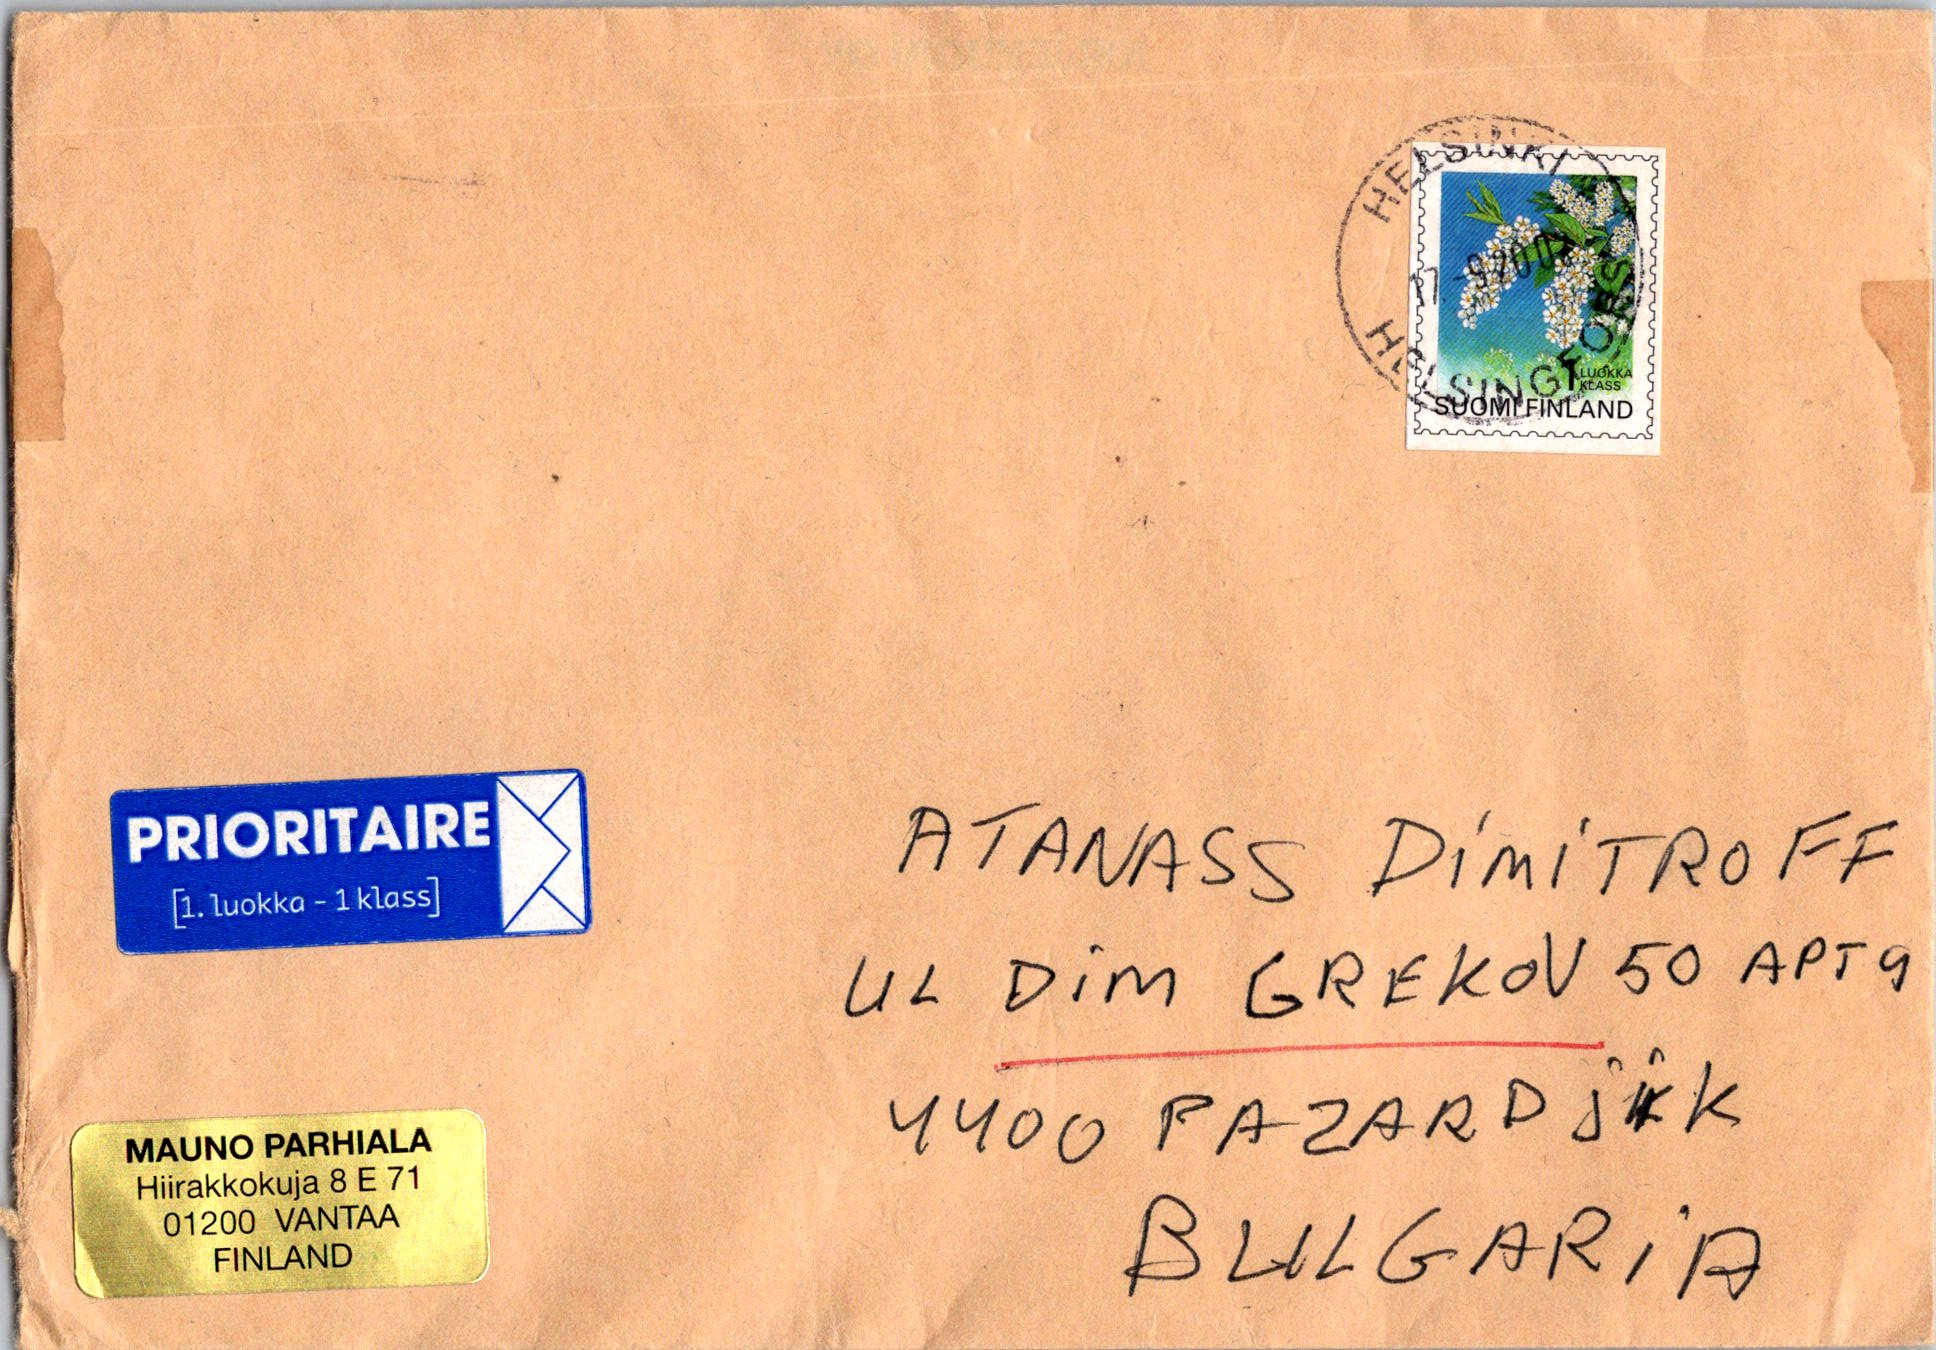 HELSINKI
17.-9.200
HELSINGFORS
1 LUOKKA
KLASS
SUOMI FINLAND
PRIORITAIRE
[1. luokka - 1 klass]
ATANASS DiMiTROFF
UL DiM GREKOV 50 APT 9
4400 PAZARDjiK
BULGARiA
MAUNO PARHIALA
Hiirakkokuja 8 E 71
01200 VANTAA
FINLAND